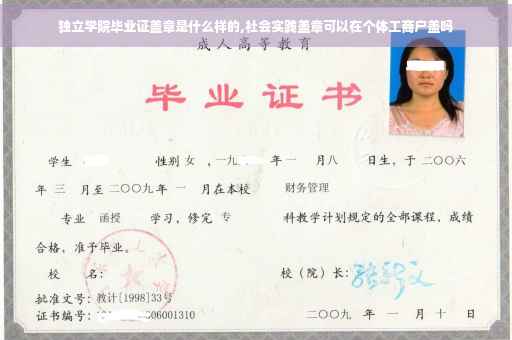 独立学院毕业证盖章是什么样的,社会实践盖章可以在个体工商户盖吗
成人高等教育
毕业证书
学生 性别 女 ,一九 年 一 月 八 日生,于 二〇〇六
年 三 月至 二〇〇九 年 一 月在本校 财务管理
专业 函授 学习,修完 专 科教学计划规定的全部课程,成绩
合格,准予毕业。
校 名: 校(院)长:
批准文号:教计[1998]33号
证书编号: 606001310 二〇〇九 年 一 月 十 日